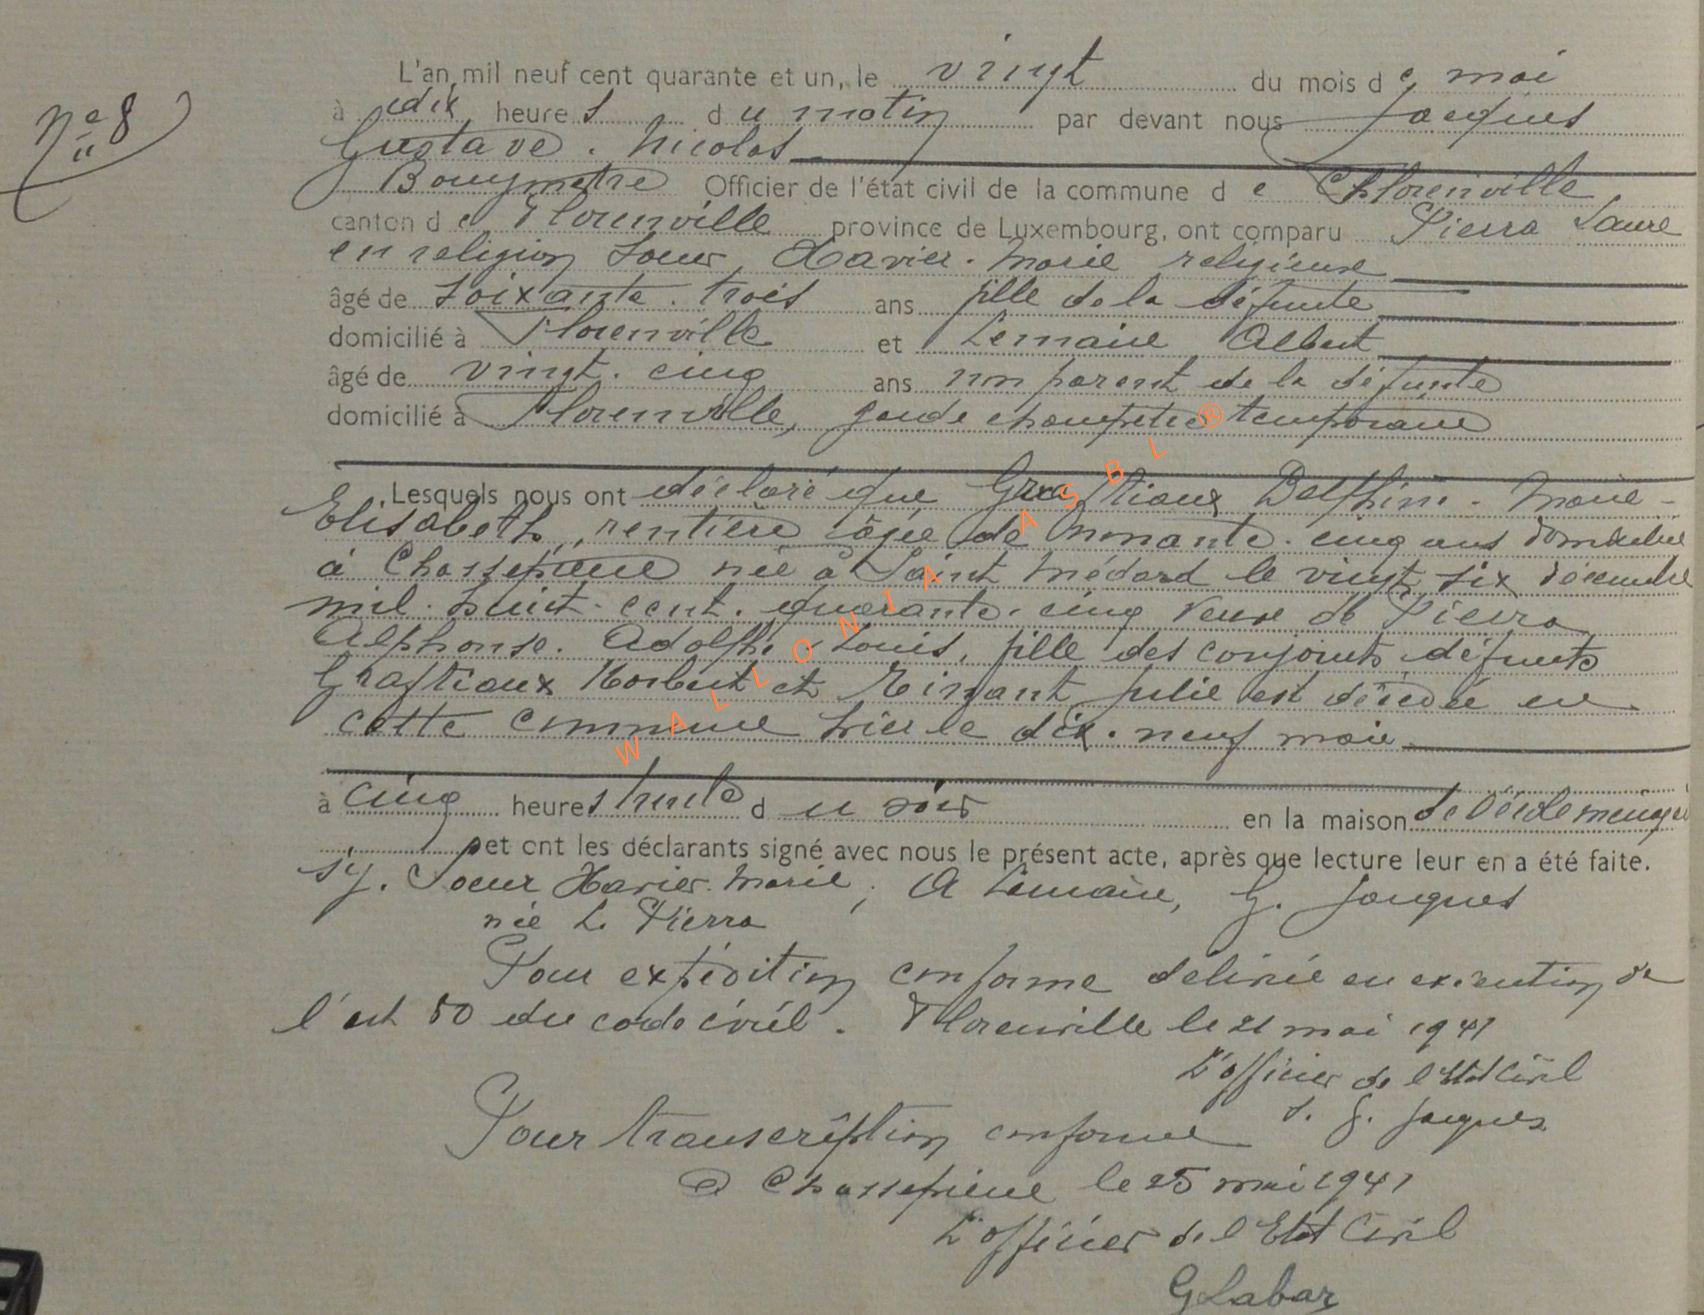 N° 8
L'an mil neuf cent quarante et un, le vingt du mois de mai
à dix heures du matin par devant nous Jacques
Gustave. Nicolas
Bourgmestre Officier de l'état civil de la commune de Florenville
canton de Florenville province de Luxembourg, ont comparu Pierra Laure
en religion Soeur Xavier. Marie religieuse
âgé de soixante. trois ans fille de la défunte
domicilié à Florenville et Lemaire Albert
âgé de vingt. cinq ans non parent de la défunte
domicilié à Florenville, garde champêtre temporaire
Lesquels nous ont déclaré que Graftiaux Delphine. Marie-
Elisabeth, rentière âgée de nonante. cinq ans domiciliée
à Chassepierre née à Saint Médard le vingt six décembre
mil. huit. cent. quarante. cinq veuve de Pierra
Alphonse. Adolphe Louis, fille des conjoints défunts
Graftiaux Norbert et Julie est décédée en
cette commune hier le dix. neuf mai
à cinq heures trente du soir en la maison
et ont les déclarants signé avec nous le présent acte, après que lecture leur en a été faite.
sy. Soeur Xavier. Marie, A Lemaire, G. Jacques
née L. Pierra
Pour expédition conforme délivrée en exécution de
l'art 80 du code civil. Florenville le 21 mai 1941
L'officier de l'Etat Civil
s. G. Jacques
Pour transcription conforme
à Chassepierre le 25 mai 1941
L'officier de l'Etat Civil
G Labar
WALLONIA ASBL ®